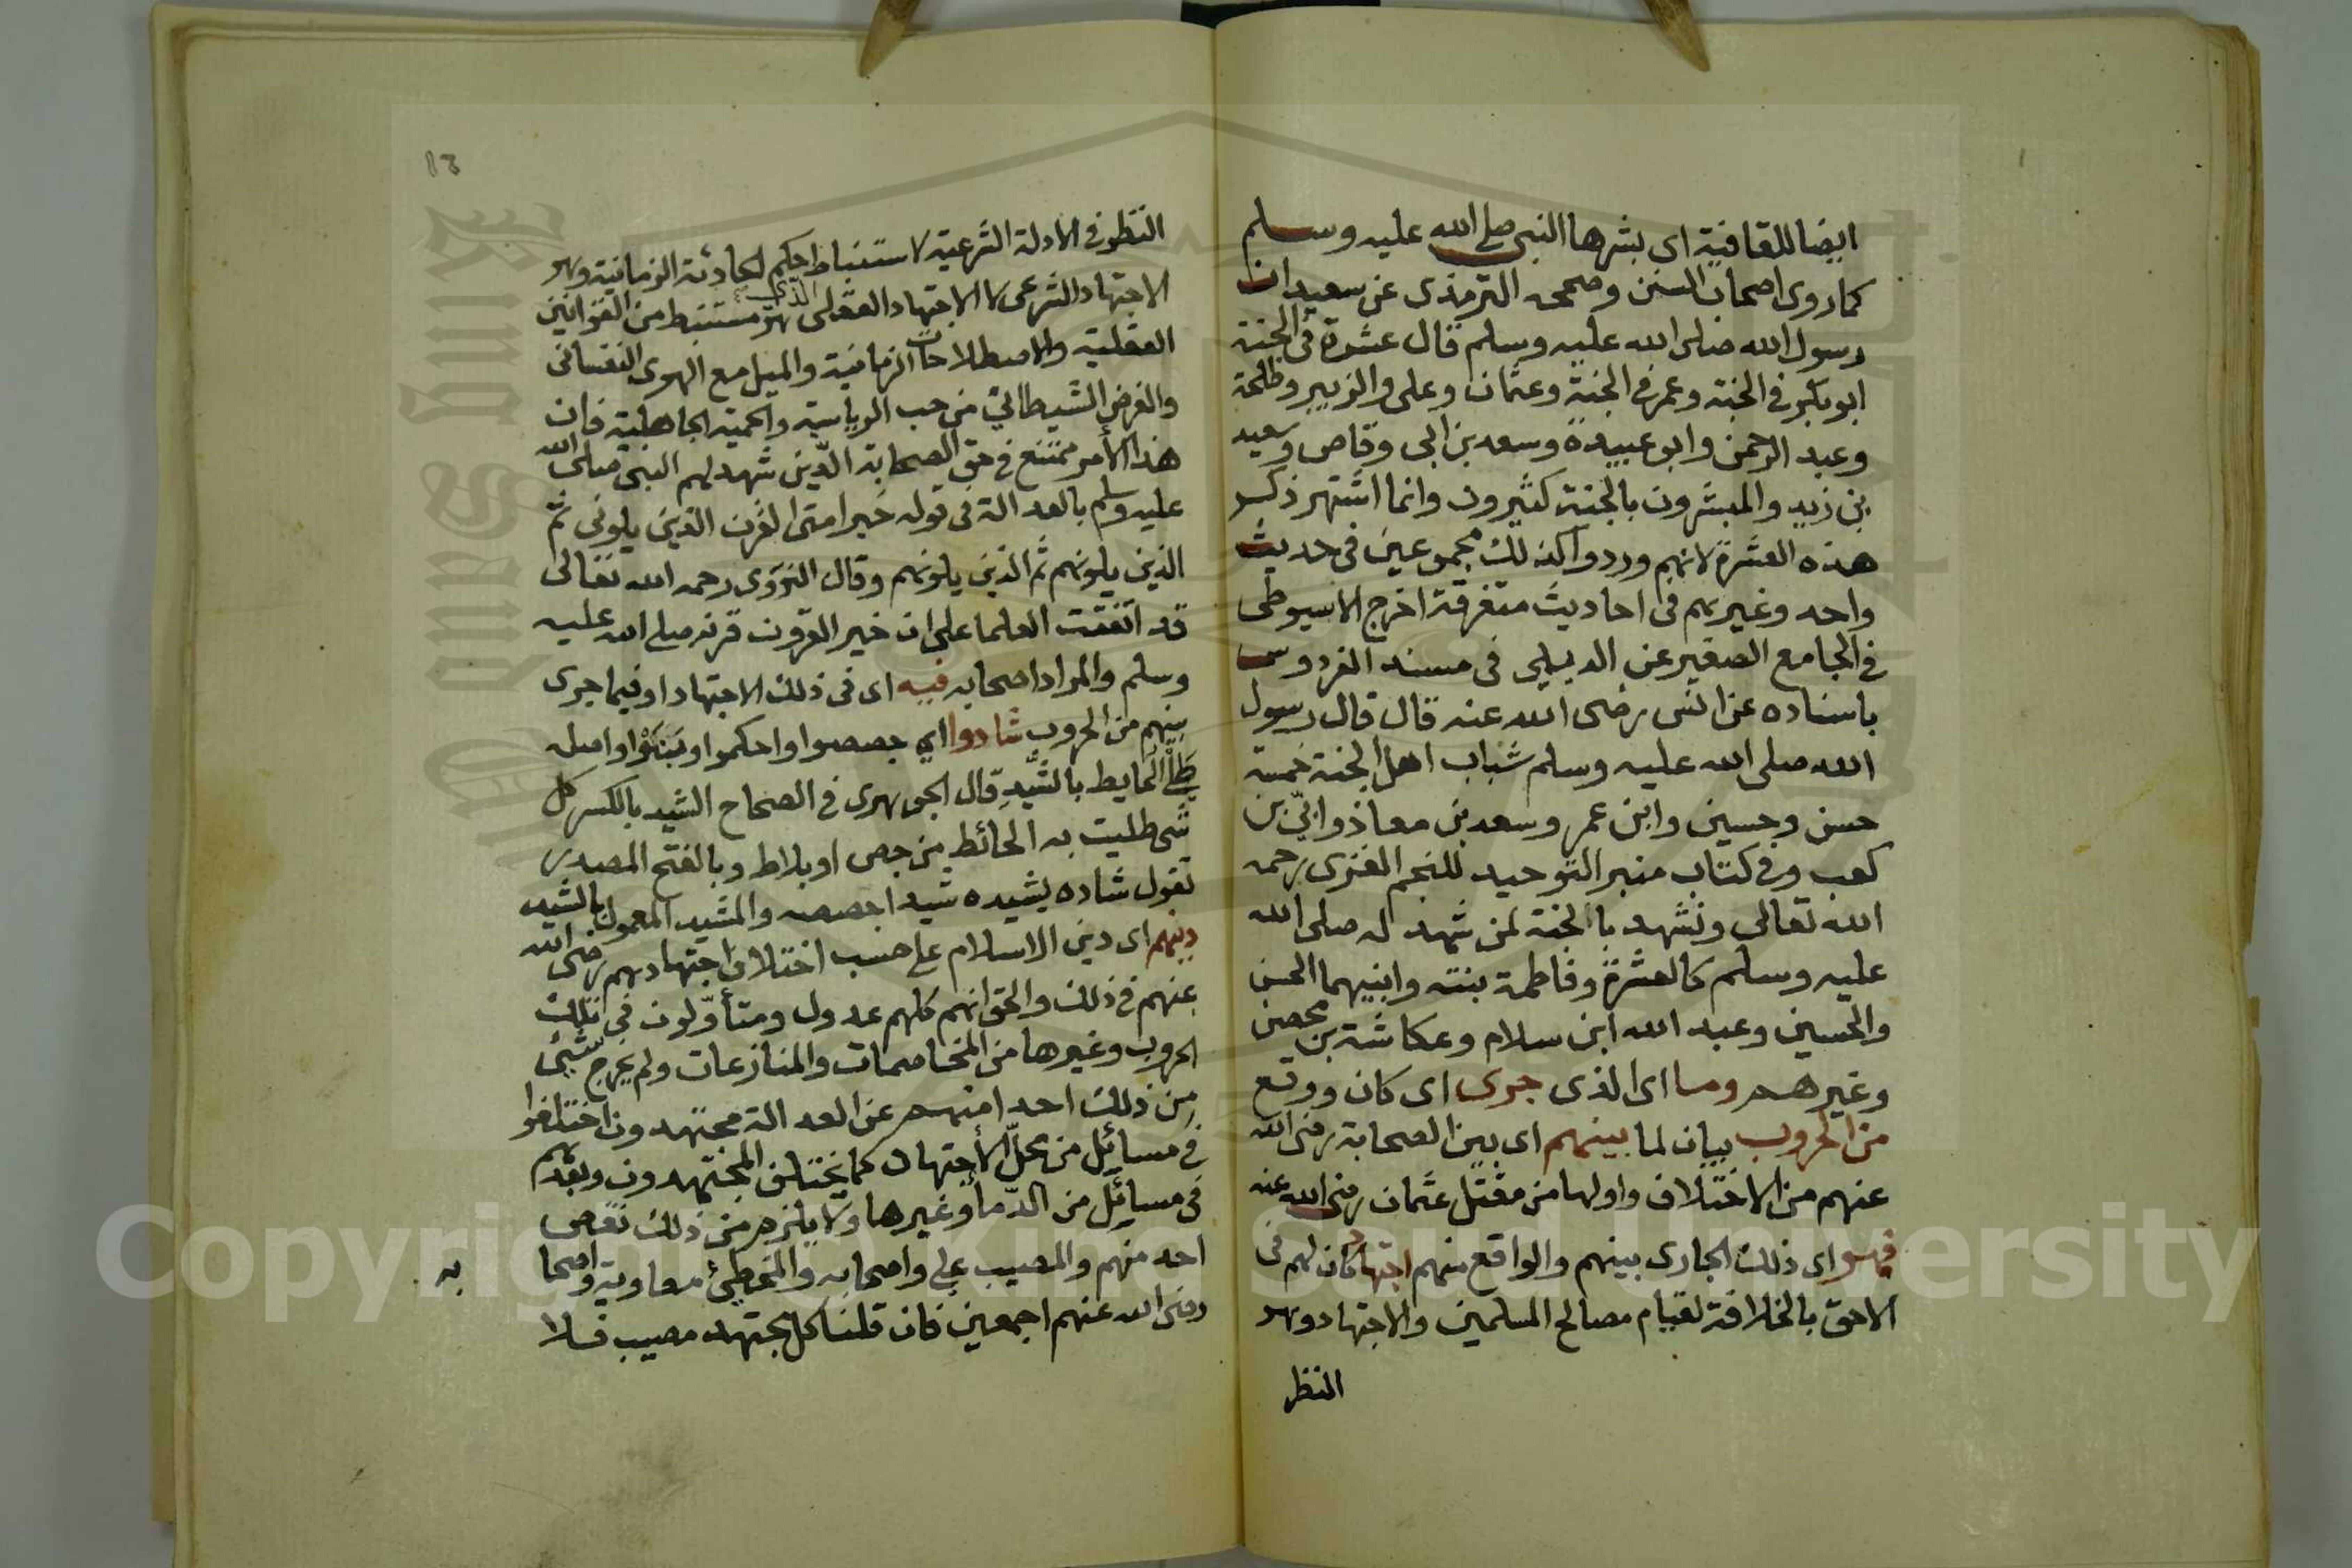 ايضا للقافية اى بشرها النبى صلى الله عليه وسلم
كما روى اصحاب السنن وصححه الترمذى عن سعيد ان
رسول الله صلى الله عليه وسلم قال عشرة فى الجنة
ابو بكر فى الجنة وعمر فى الجنة وعثمان وعلى والزبير وطلحة
وعبد الرحمن وابو عبيدة وسعد بن ابى وقاص وسعيد
بن زيد والمبشرون بالجنة كثيرون وانما اشتهر ذكر
هذه العشرة لانهم وردوا كذلك مجموعين فى حديث
واحد وغيرهم فى احاديث متفرقة اخرج الاسيوطى
فى الجامع الصغير عن الديلمى فى مسند الفردوس
باسناده عن انس رضى الله عنه قال قال رسول
الله صلى الله عليه وسلم شباب اهل الجنة خمسة
حسن وحسين وابن عمر وسعد بن معاذ وابىّ بن
كعب وفى كتاب منبر التوحيد للنجم الغزى رحمه
الله تعالى ونشهد بالجنة لمن شهد له صلى الله
عليه وسلم كالعشرة وفاطمة بنته وابنيهما الحسن
والحسين وعبد الله ابن سلام وعكاشة بن محصن
وغيرهم وما اى الذى جرى اى كان ووقع
من الحروب بيان لما بينهم اى بين الصحابة رضى الله
عنهم من الاختلاف واولها من مقتل عثمان رضى الله عنه
فهو اى ذلك الجارى بينهم والواقع منهم اجتهاد كان لهم فى
الاحق بالخلافة لقيام مصالح المسلمين والاجتهاد وهو
النظر
١٣
النظر فى الادلة الشرعية لاستنباط الحكم لحادثة الزمانية وهو
الاجتهاد الشرعى لا الاجتهاد العقلى الذى هو مستنبط من القوانين
العقلية والاصطلاحات الزمانية والميل مع الهوى النفسانى
والغرض الشيطانى من حب الرياسة والحمية الجاهلية فان
هذا الأمر ممتنع فى حق الصحابة الذين شهد لهم النبى صلى الله
عليه وسلم بالعدالة فى قوله خير امتى القرن الذين يلونى ثم
الذين يلونهم ثم الذين يلونهم وقال النووى رحمه الله تعالى
قد اتفقت العلما على ان خير القرون قرنه صلى الله عليه
وسلم والمراد اصحابه فيه اى فى ذلك الاجتهاد او فيما جرى
بينهم من الحروب شادوا اي جصصوا او احكموا او بَنَوْا واصله
طَلْىُ الحايط بالشِّيدِ قال الجوهرى فى الصحاح الشيد بالكسر كل
شى طليت به الحائط من جص او بلاط وبالفتح المصدر
تقول شاده يشيده شيدا جصصه والمشيد المعمول بالشيد
دينهم اى دين الاسلام على حسب اختلاف اجتهادهم رضى الله
عنهم فى ذلك والحق انهم كلهم عدول ومتأوّلون فى تلك
الحروب وغيرها من المخاصمات والمنازعات ولم يخرج شيئ
من ذلك احدا منهم عن العدالة مجتهدون اختلفوا
فى مسائل من محلّ الأجتهاد كما يختلف المجتهدون وبعدهم
فى مسائل من الدّما وغيرها ولا يلزم من ذلك نقص
احد منهم والمصيب على واصحابه والمخطئ معاوية واصحابه
رضى الله عنهم اجمعين فان قلنا كل مجتهد مصيب فلا
Copyright © King Saud University